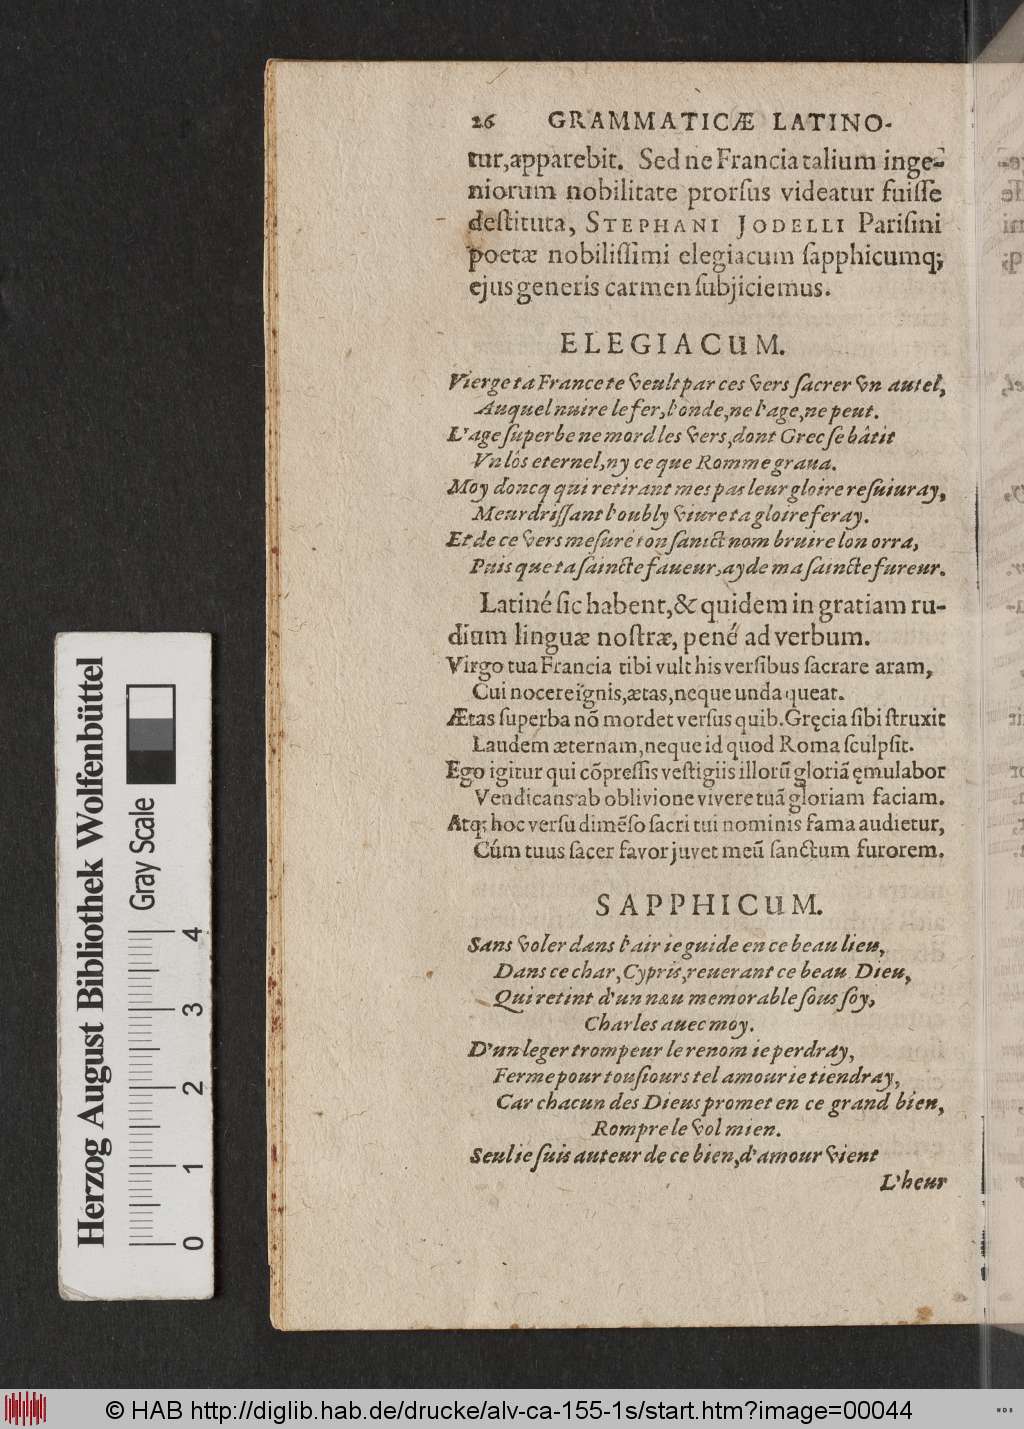 26 GRAMMATICÆ LATINO-
tur, apparebit. Sed ne Francia talium inge-
niorum nobilitate prorſus videatur fuiſſe
deſtituta, STEPHANI JODELLI Pariſini
poetæ nobiliſſimi elegiacum ſapphicumq;
ejus generis carmen ſubjiciemus.
ELEGIACUM.
Vierge ta France te veult par ces vers ſacrer vn autel,
Auquel nuire le fer, l'onde, ne l'age, ne peut.
L'age ſuperbe ne mord les vers, dont Grec ſe bâtit
Vn lôs eternel, ny ce que Romme graua.
Moy doncq qui retirant mes pas leur gloire reſuiuray,
Meurdriſſant l'oubly viure ta gloire feray.
Et de ce vers meſuré ton ſainct nom bruire lon orra,
Puis que ta ſaincte faueur, ayde ma ſaincte fureur.
Latiné ſic habent, & quidem in gratiam ru-
dium linguæ noſtræ, pené ad verbum.
Virgo tua Francia tibi vult his verſibus ſacrare aram,
Cui nocere ignis, ætas, neque unda queat.
Ætas ſuperba nõ mordet verſus quib. Gręcia ſibi ſtruxit
Laudem æternam, neque id quod Roma ſculpſit.
Ego igitur qui cõpreſſis veſtigiis illorũ gloriã ęmulabor
Vendicans ab oblivione vivere tuã gloriam faciam.
Atq; hoc verſu dimẽſo ſacri tui nominis fama audietur,
Cúm tuus ſacer favor juvet meũ ſanctum furorem.
SAPPHICUM.
Sans voler dans l'air ie guide en ce beau lieu,
Dans ce char, Cypris, reuerant ce beau Dieu,
Qui retint d'un nœu memorable ſous ſoy,
Charles auec moy.
D'un leger trompeur le renom ie perdray,
Ferme pour touſiours tel amour ie tiendray,
Car chacun des Dieus promet en ce grand bien,
Rompre le vol mien.
Seul ie ſuis auteur de ce bien, d'amour vient
L'heur
Herzog August Bibliothek Wolfenbüttel
Gray Scale
0 1 2 3 4
© HAB http://diglib.hab.de/drucke/alv-ca-155-1s/start.htm?image=00044